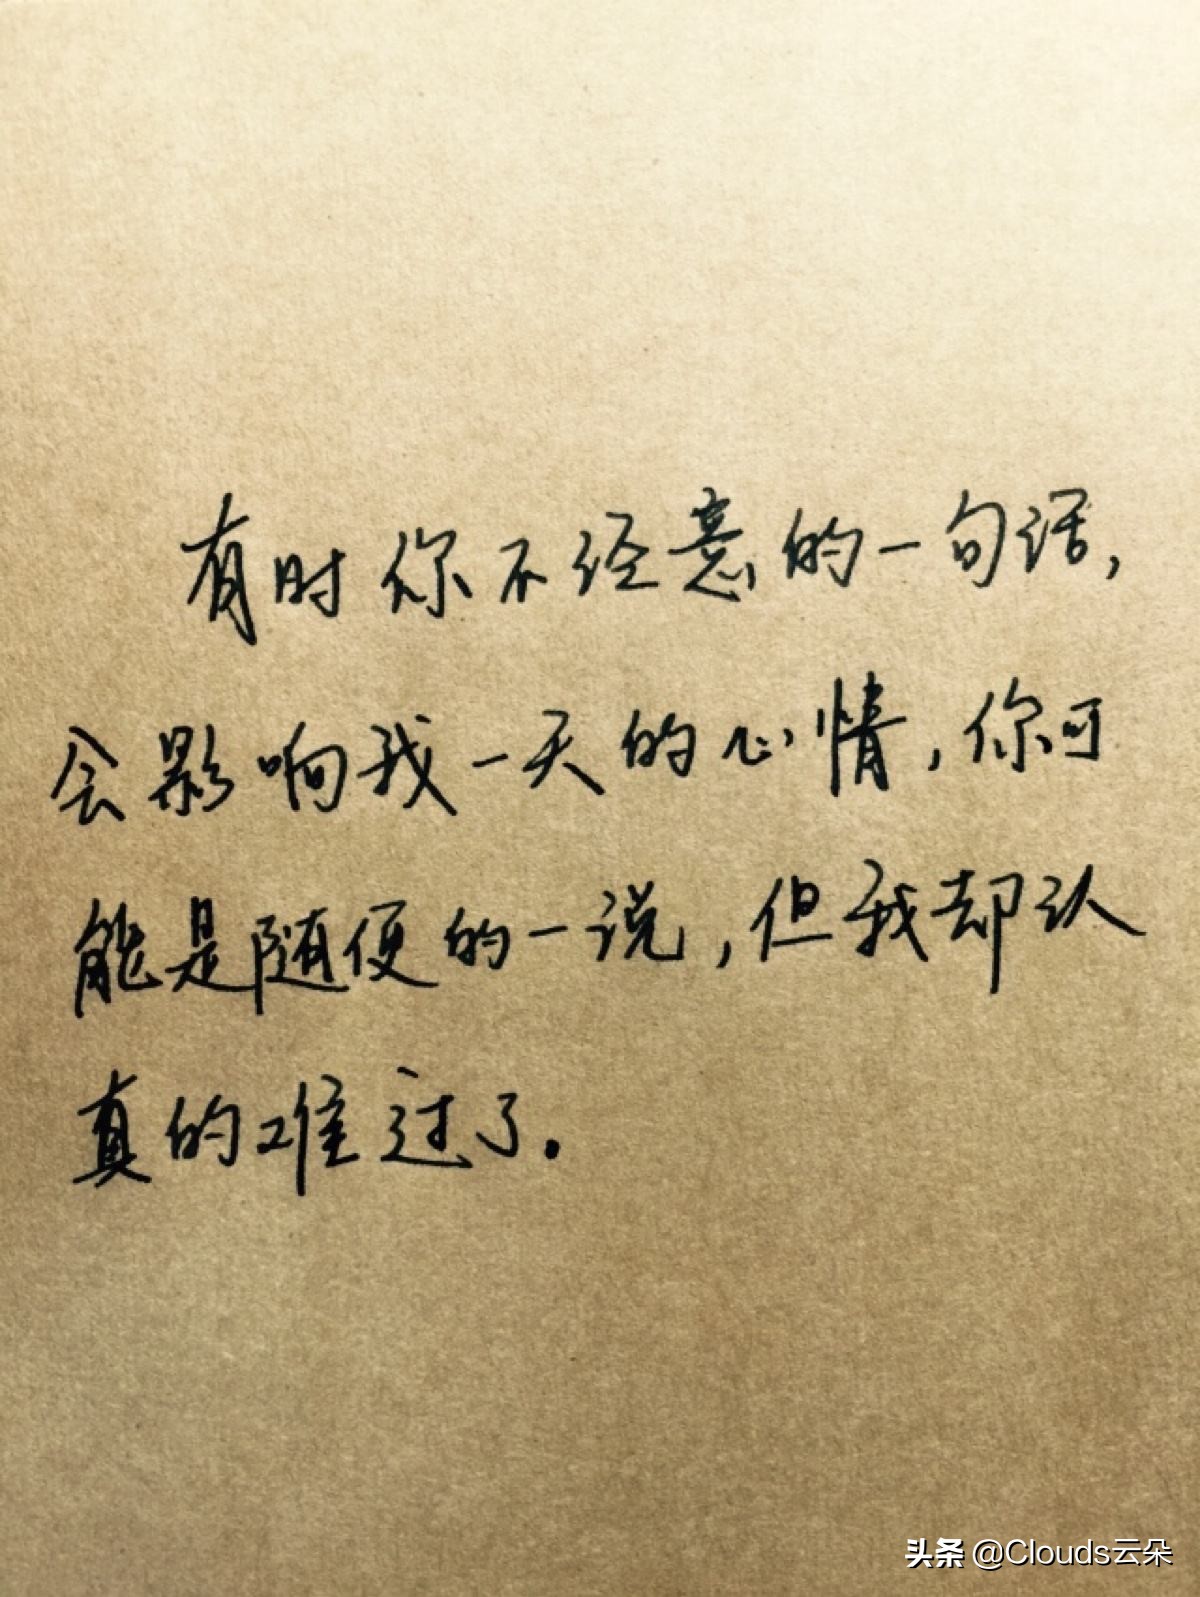 有时你不经意的一句话,
会影响我一天的心情,你可
能是随便的一说,但我却认
真的难过了.
头条 @Clouds云朵